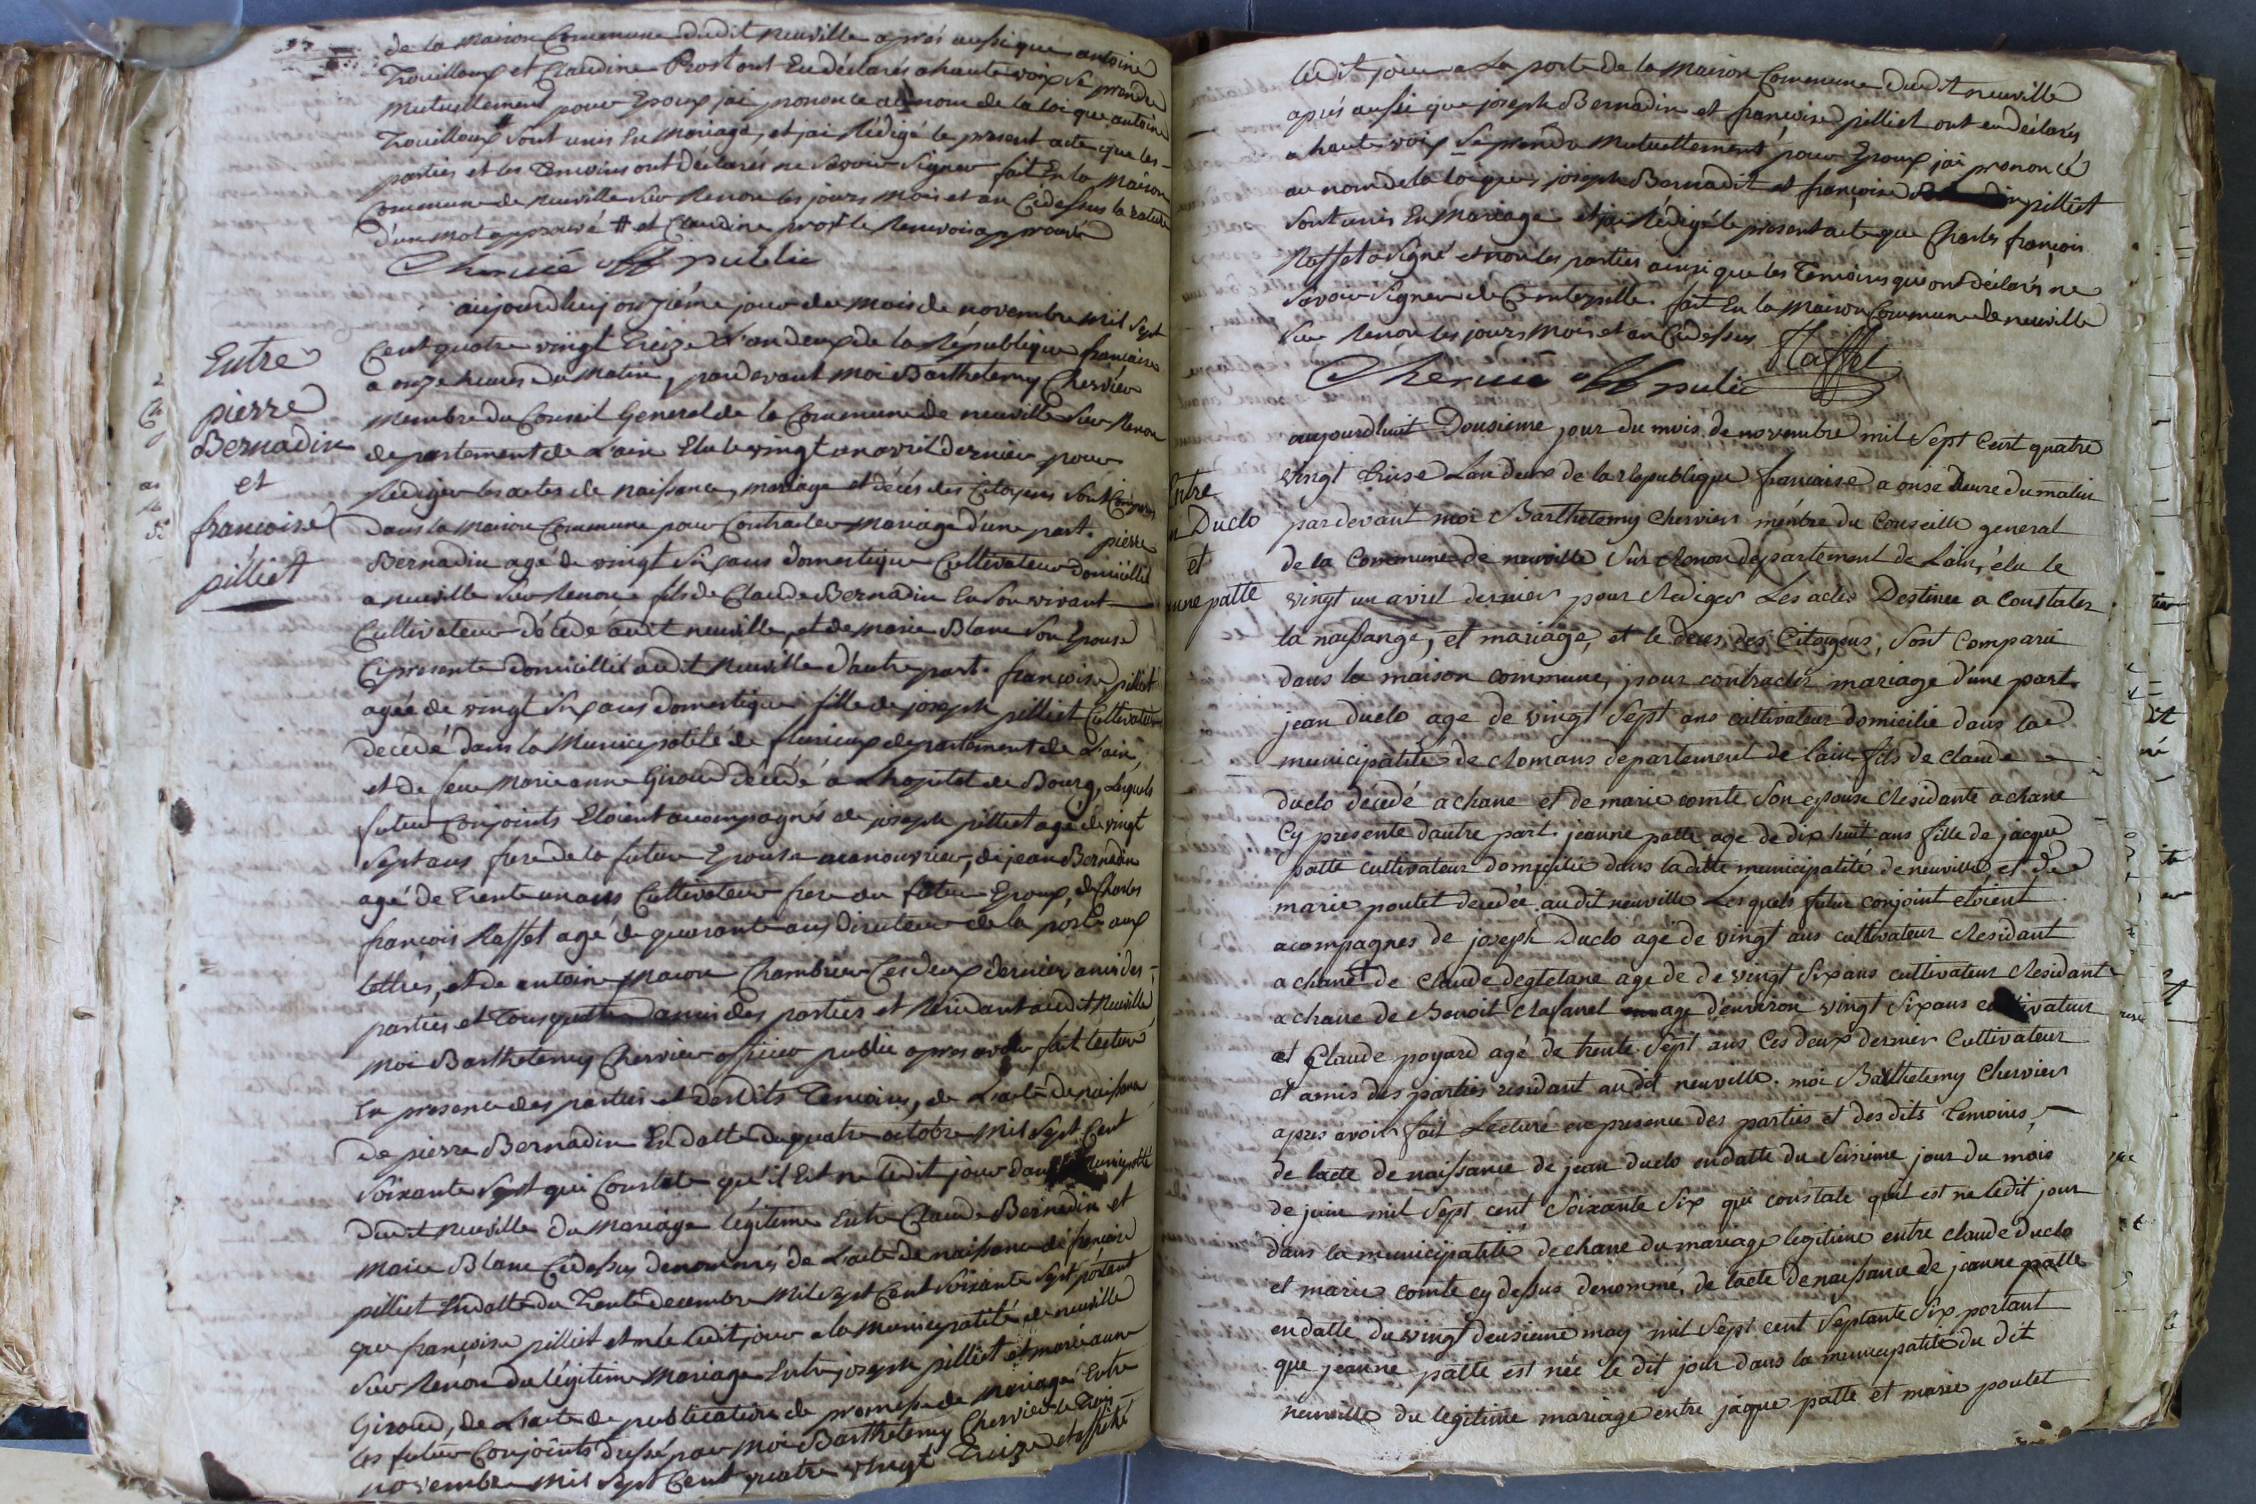 de la maison Commune dudit neuville après aussi que antoine
Trouilloux et Claudine Prost ont Eu déclarés a haute voix se prendre
mutuellement pour Epoux jai prononcé au nom de la loi que antoine
Trouilloux # sont unis En Mariage, et jai Rédigé le present acte que les
parties et les Temoins ont déclarés ne savoir signer fait En la maison
Commune de neuville sur Renon les jours mois et an Cidessus la rature
d'un mot approuvé # et Claudine prost le Renvoi approuvé
Chervié off public
aujourdhuy onzième jour du mois de novembre mil sept
Cent quatre vingt Treize L'an deux de la République francaise
a onze heures du matin, pardevant moi Barthelemy Chervier
Membre du Conseil General de la Commune de neuville sur Renon
departement de L'ain Elu le vingt un avril dernier pour
Rediger les actes de naissance, mariage et décès des Citoyens sont Comparus
dans la maison Commune pour Contracter Mariage d'une part. pierre
Bernadin agé de vingt six ans domestique Cultivateur domicillié
a neuville sur Renon fils de Claude Bernadin En son vivant
Cultivateur décédé audit neuville, et de Marie Blanc son Epouse
Cipresente domicillié audit neuville d'autre part. francoise pilliet
agée de vingt six ans domestique fille de joseph pilliet Cultivateur
decedé dans la Municipalité de fleurieux departement de L'ain,
et de feue Marie anne Giroud décédé a Lhopital de Bourg, Lesquels
futur Conjoints Etoient acompagnés de joseph pilliet agé de vingt
sept ans frere de la future Epouse manouvrier, de jean Bernadin
agé de Trente un ans Cultivateur frere du futur Epoux, de Charles
françois Raffet agé de quarante ans Directeur de la poste aux
lettres, et de antoine Macon Chambrier Ces deux dernier amis des
parties et Tous quatre amis des parties et Residant audit Neuville
moi Barthelemy Chervier officier public apres avoir fait lecture
En presence des parties et desdits Temoins, de L'acte de naissance
de pierre Bernadin En datte du quatre octobre mil sept Cent
soixante sept qui Constate qu'il Est né ledit jour dans la Municipalité
dudit neuville du Mariage légitime Entre Claude Bernadin et
Marie Blanc Cidessus dénommés de L'acte de naissance de francoise
pilliet En datte du Trente decembre Mil sept Cent soixante sept portant
que françoise pilliet est née ledit jour a la Municipalité de neuville
sur Renon du légitime Mariage Entre joseph pilliet et marie anne
Giroud, de L'acte de publication de promesse de Mariage Entre
les futur Conjoints dressé par moi Barthélemy Chervier le Trois
novembre mil sept Cent quatre vingt Treize et affiché
Entre
pierre
Bernadin
et
francoise
pilliet
ledit jour a La porte de la Maison Commune dudit neuville
après aussi que joseph Bernadin et françoise pilliet ont eu déclarés
a haute voix se prendre Mutuellement pour Epoux jai prononcé
au nom de la loi que joseph Bernadit et françoise pilliet
sont unis En Mariage et jai Rédigé le present acte que Charles françois
Raffet a signé et non les parties ainsi que les Temoins qui ont déclarés ne
savoir signer de Ce interpellé. fait En la Maison Commune de neuville
sur Renon les jours Mois et an Cidessus
Raffet
Chervié off public
aujourdhuit Dousieme jour du mois de novembre mil sept cent quatre
vingt treise L'an deux de la republique francaise a onse heure du matin
pardevant moi Barthelemy Chervier membre du Conseille general
de la Commune de neuville sur Renon departement de Lain, élu le
vingt un avril dernier pour Rediger Les actes Destinee a constater
la naissange, et mariage, et le deces des Citoyens, sont comparu
dans la maison commune, pour contracter mariage d'une part.
jean duclo age de vingt sept ans cultivateur domicilié dans la
municipalité de Romans departement de l'ain fils de claude
duclo décédé a chane et de marie comte son epouse Residante a chane
Cy presente dautre part. jeanne patte age de dix huit ans fille de jacque
patte cultivateur domicilié dans la ditte municipalité de neuville, et de
marie poutet decedée audit neuville Lesquels futur conjoint etoient
acompagnes de joseph Duclo age de vingt ans cultivateur Residant
a chane de claude degletane age de de vingt six ans cultivateur Residant
a chane de Benoit Rafanel age d'environ vingt six ans cultivateur
et Claude poyard agé de trente sept ans Ces deux dernier Cultivateur
et amis des parties residant au dit neuville. moi Barthelemy Chervier
apres avoir fait Lecture en presence des parties et des dits temoins,
de lacte de naissance de jean duclo en datte du seisieme jour du mois
de juin mil sept cent soixante six qui constate quil est ne ledit jour
dans la municipalité de chane du mariage legitime entre claude duclo
et marie comte cy dessus denommé, de lacte de naissance de jeanne patte
en datte du vingt deusieme may mil sept cent septante six portant
que jeanne patte est née le dit jour dans la municipalité du dit
neuville du legitime mariage entre jaque patte et marie poutet
Entre
Duclo
et
patte